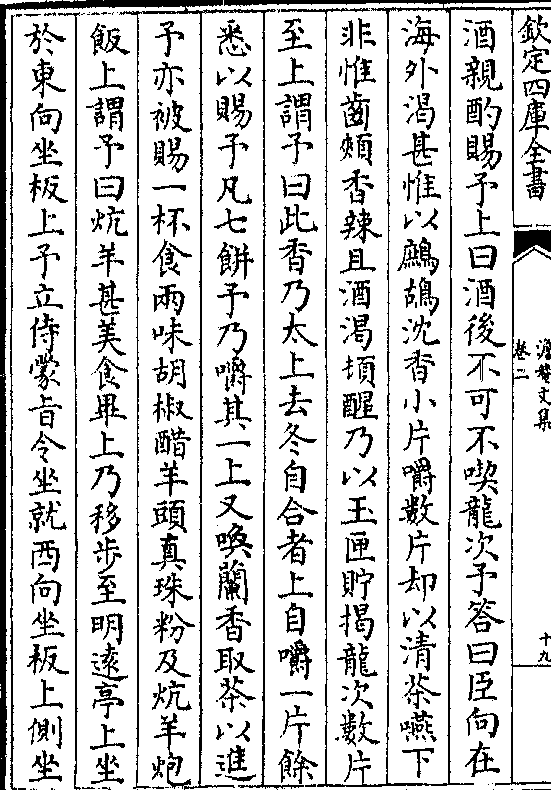 欽定四庫全書
澹菴文集
卷二
十九
酒親酌賜予上曰酒後不可不喫龍次予答曰臣向在
海外渴甚惟以鷓鴣沈香小片嚼數片却以清茶嚥下
非惟齒頰香辣且酒渴頓醒乃以玉匣貯揭龍次數片
至上謂予曰此香乃太上去冬自合者上自嚼一片餘
悉以賜予凡七餅予乃嚼其一上又喚蘭香取茶以進
予亦被賜一杯食兩味胡椒醋羊頭真珠粉及炕羊炮
飯上謂予曰炕羊甚美食畢上乃移步至明遠亭上坐
於東向坐板上予立侍蒙旨令坐就西向坐板上側坐